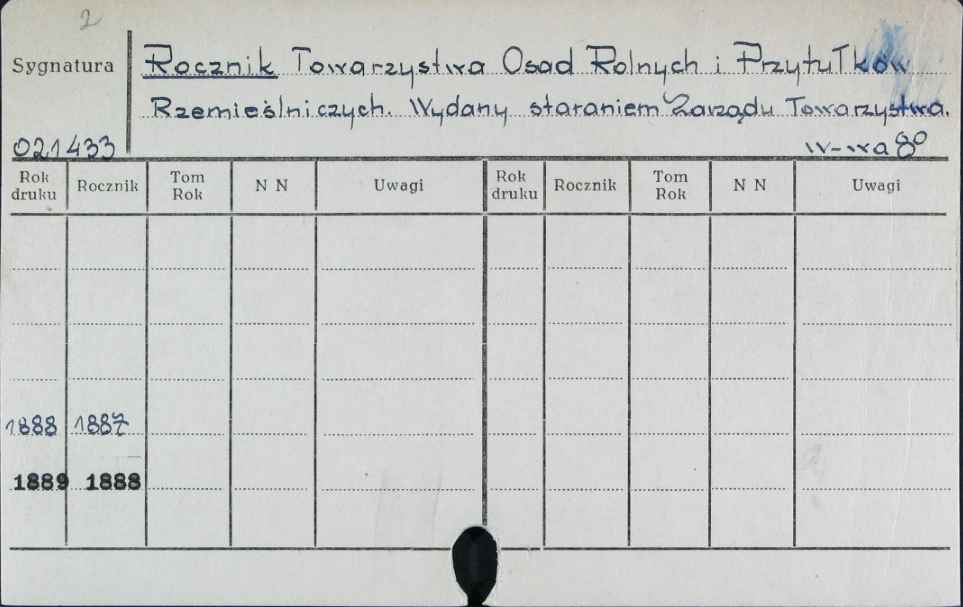 2
Sygnatura Rocznik Towarzystwa Osad Rolnych i Przytułków
Rzemieślniczych. Wydany staraniem Zarządu Towarzystwa.
021433 W-wa 8º
Rok druku Rocznik Tom Rok N N Uwagi Rok druku Rocznik Tom Rok N N Uwagi
1888 1887
1889 1888